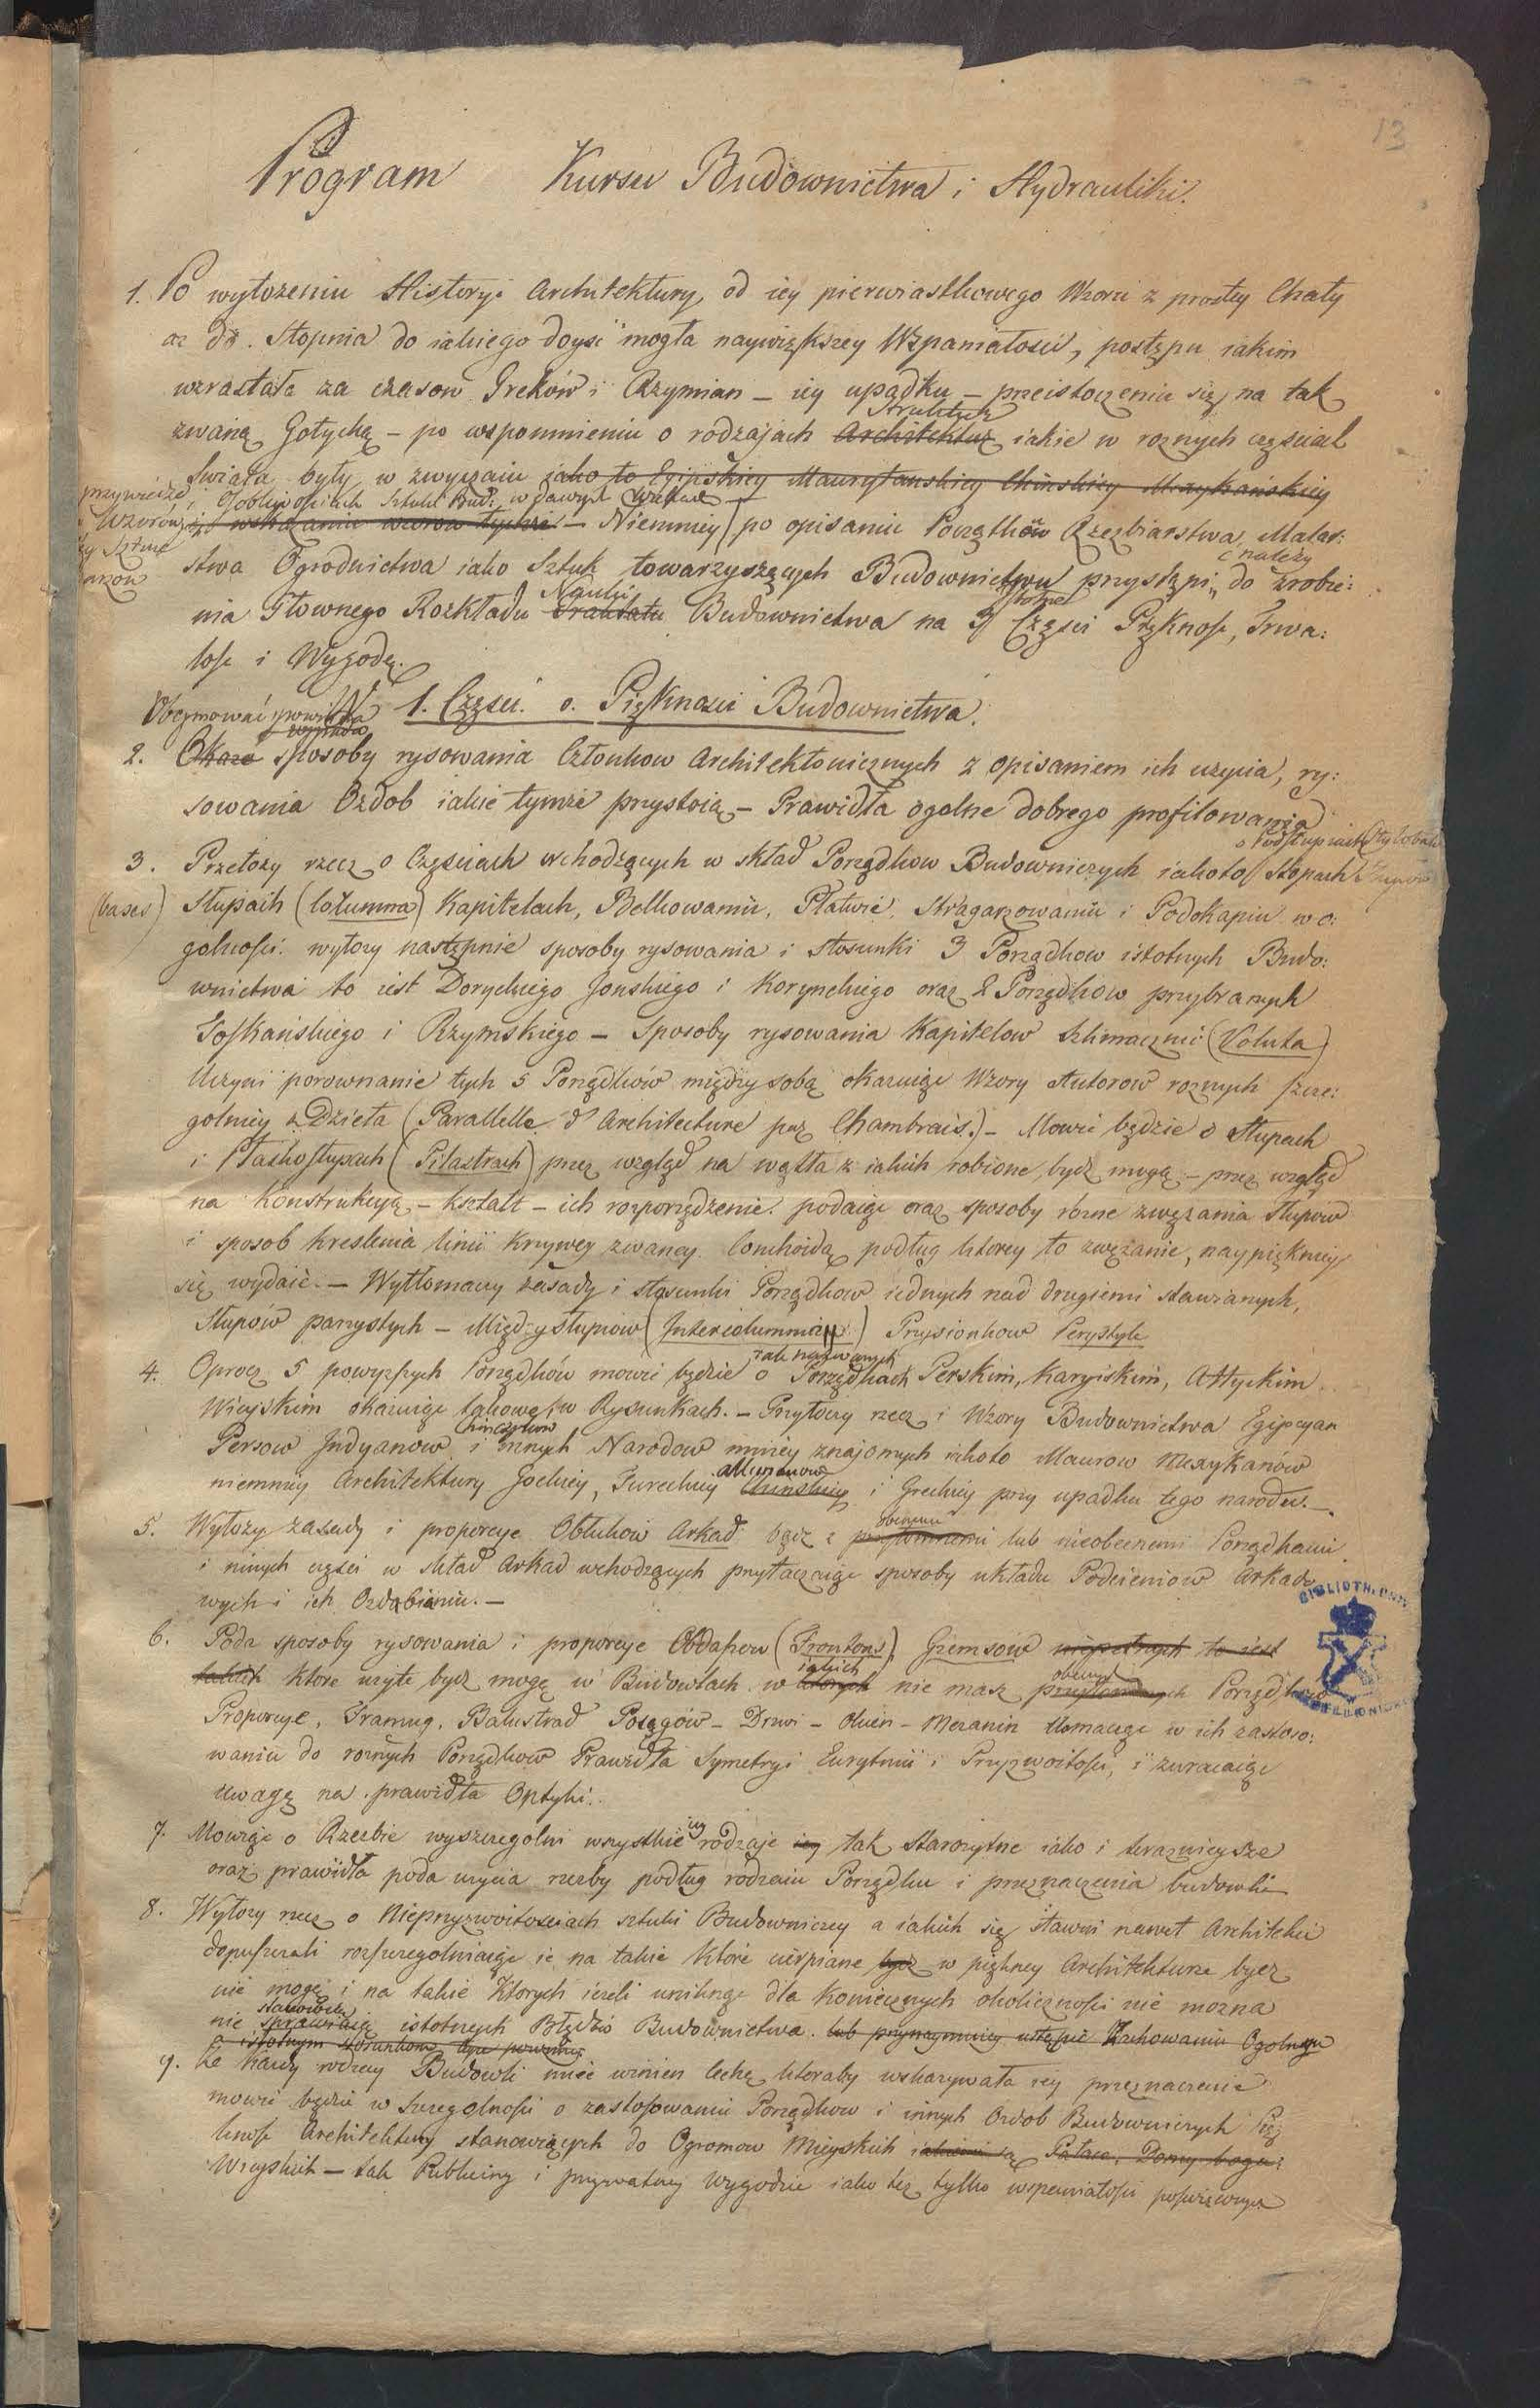 13
Program Kursu Budownictwa i Hydrauliki.
1. Po wyłożeniu Historyi Architektury, od iey pierwiastkowego Wzoru z prostey Chaty
az do Stopnia do iakiego doyść mogła naywiększey Wspaniałości, postępu iakim
wzrastała za czasow Greków i Rzymian – iey upadku – przeistoczenia się na tak
Struktur
zwaną Gotycką – po wspomnieniu o rodzaiach Architektur iakie w roznych częściach
Swiata były w zwyczaiu iako to Egipskiey Maurytanskiey Chinskiey Mexykańskiey
i Osobliwosciach Sztuki Bud: w dawnych
Wzorów wskazaniu wzorow tychże – Niemniey po opisaniu Początków Rzezbiarstwa, Malar:
należy
stwa Ogrodnictwa iako Sztuk towarzyszących Budownictwu przystąpi do zrobie:
Nauki
nia Głownego Rozkładu Traktatu Budownictwa na 3 Części Piękność, Trwa:
łość i Wygodę.
1. Części. o. Piękności Budownictwa.
Obeymować powinna
2. Okaże sposoby rysowania Członkow Architektonicznych z opisaniem ich użycia, ry:
sowania Ozdob iakie tymże przystoią – Prawidła ogolne dobrego profilowania
3. Przełoży rzecz o Częściach wchodzących w skład Porządkow Budowniczych iakoto Stopach
(bases) Słupach (Columna) Kapitelach, Belkowaniu, Płatwie, Stragarzowaniu i Podokapiu w o:
golności. wyłoży następnie sposoby rysowania i stosunki 3 Porządkow istotnych Budo:
wnictwa to iest Doryckiego Jonskiego i Korynckiego oraz 2 Porządkow przybranych
Toskańskiego i Rzymskiego – Sposoby rysowania Kapitelow Slimacznic (Voluta)
Uczyni porownanie tych 5 Porządków między sobą okazuiąc Wzory Autorow roznych szcze:
golniey z Dzieła (Parallelle d'Architecture par Chambrais.) – Mowić będzie o Słupach
i Płaskosłupach (Pilastrach) przez wzgląd na węgła z iakich robione bydz mogą – przez wzgląd
na Konstrukcyą – Kształt – ich rozporządzenie podaiąc oraz sposoby rozne zwężania Słupow
i sposob kreslenia linii krzywey zwaney Conchoidą podług ktorey to zwężanie, naypiękniey
się wydaie. – Wytłomaczy zasady i stosunki Porządkow iednych nad drugiemi stawianych,
Słupów parzystych – Międzysłupiow (Intercolumnia) Przysionkow Perystyle
tak nazwanych
4. Oprocz 5 powyższych Porządków mowić będzie o Porządkach Perskim, Karyiskim, Attyckim
Wieyskim okazuiąc takowe w Rysunkach. – Przytoczy rzecz i Wzory Budownictwa Egipcyan
Chinczykow
Persow Indyanow i innych Narodow mniey znajomych iakoto Maurow Mexykanów
niemniey Architektury Gockiey, Tureckiey Chinskiey i Greckiey przy upadku tego narodu. –
5. Wyłoży zasady i proporcye Obłukow Arkad bądz z przytomnemi lub nieobecnemi Porządkami
i innych części w skład Arkad wchodzących przytaczaiąc sposoby układu Podcieniow Arkado
wych i ich Ozdabianiu. –
6. Poda sposoby rysowania i proporcye Obdasow (Frontons), Gzemsów niepełnych to iest
iakich
takich ktore użyte bydz mogą w Budowlach w ktorych nie masz przytomnych Porządkow
Proporcye, Framug, Balustrad Posągów – Drzwi – Okien – Mezanin tłomacząc w ich zastoso:
waniu do roznych Porządkow Prawidła Symetryi Eurytmii i Przyzwoitości, i zwracaiąc
uwagę na prawidła Optyki.
7. Mowiąc o Rzezbie wyszczegolni wszystkie iey rodzaje iey tak starożytne iako i teraznieysze
oraz prawidła poda użycia rzezby podług rodzaiu Porządku i przeznaczenia budowli
8. Wyłoży rzecz o Nieprzyzwoitosciach sztuki Budowniczey a iakich się sławni nawet Architekci
dopuszczali rozszczegolniaiąc ie na takie które cierpiane bydz w piękney Architekturze bydz
nie mogą i na takie Ktorych ieżeli uniknąć dla koniecznych okoliczności nie można
stanowią
nie sprawiaią istotnych Błędow Budownictwa. lub przynaymniey
9. Ze każdy rodzay Budowli mieć winien cechę ktoraby wskazywała iey przeznaczenie
mowić będzie w Szczegolności o zastosowaniu Porządkow i innych Ozdob Budowniczych Pię
kność Architektury stanowiących do Ogromow Mieyskich iakiemi są Pałace, Domy
Wieyskich – tak Publiczney i prywatney Wygodzie iako też tylko wspaniałości poswięconych